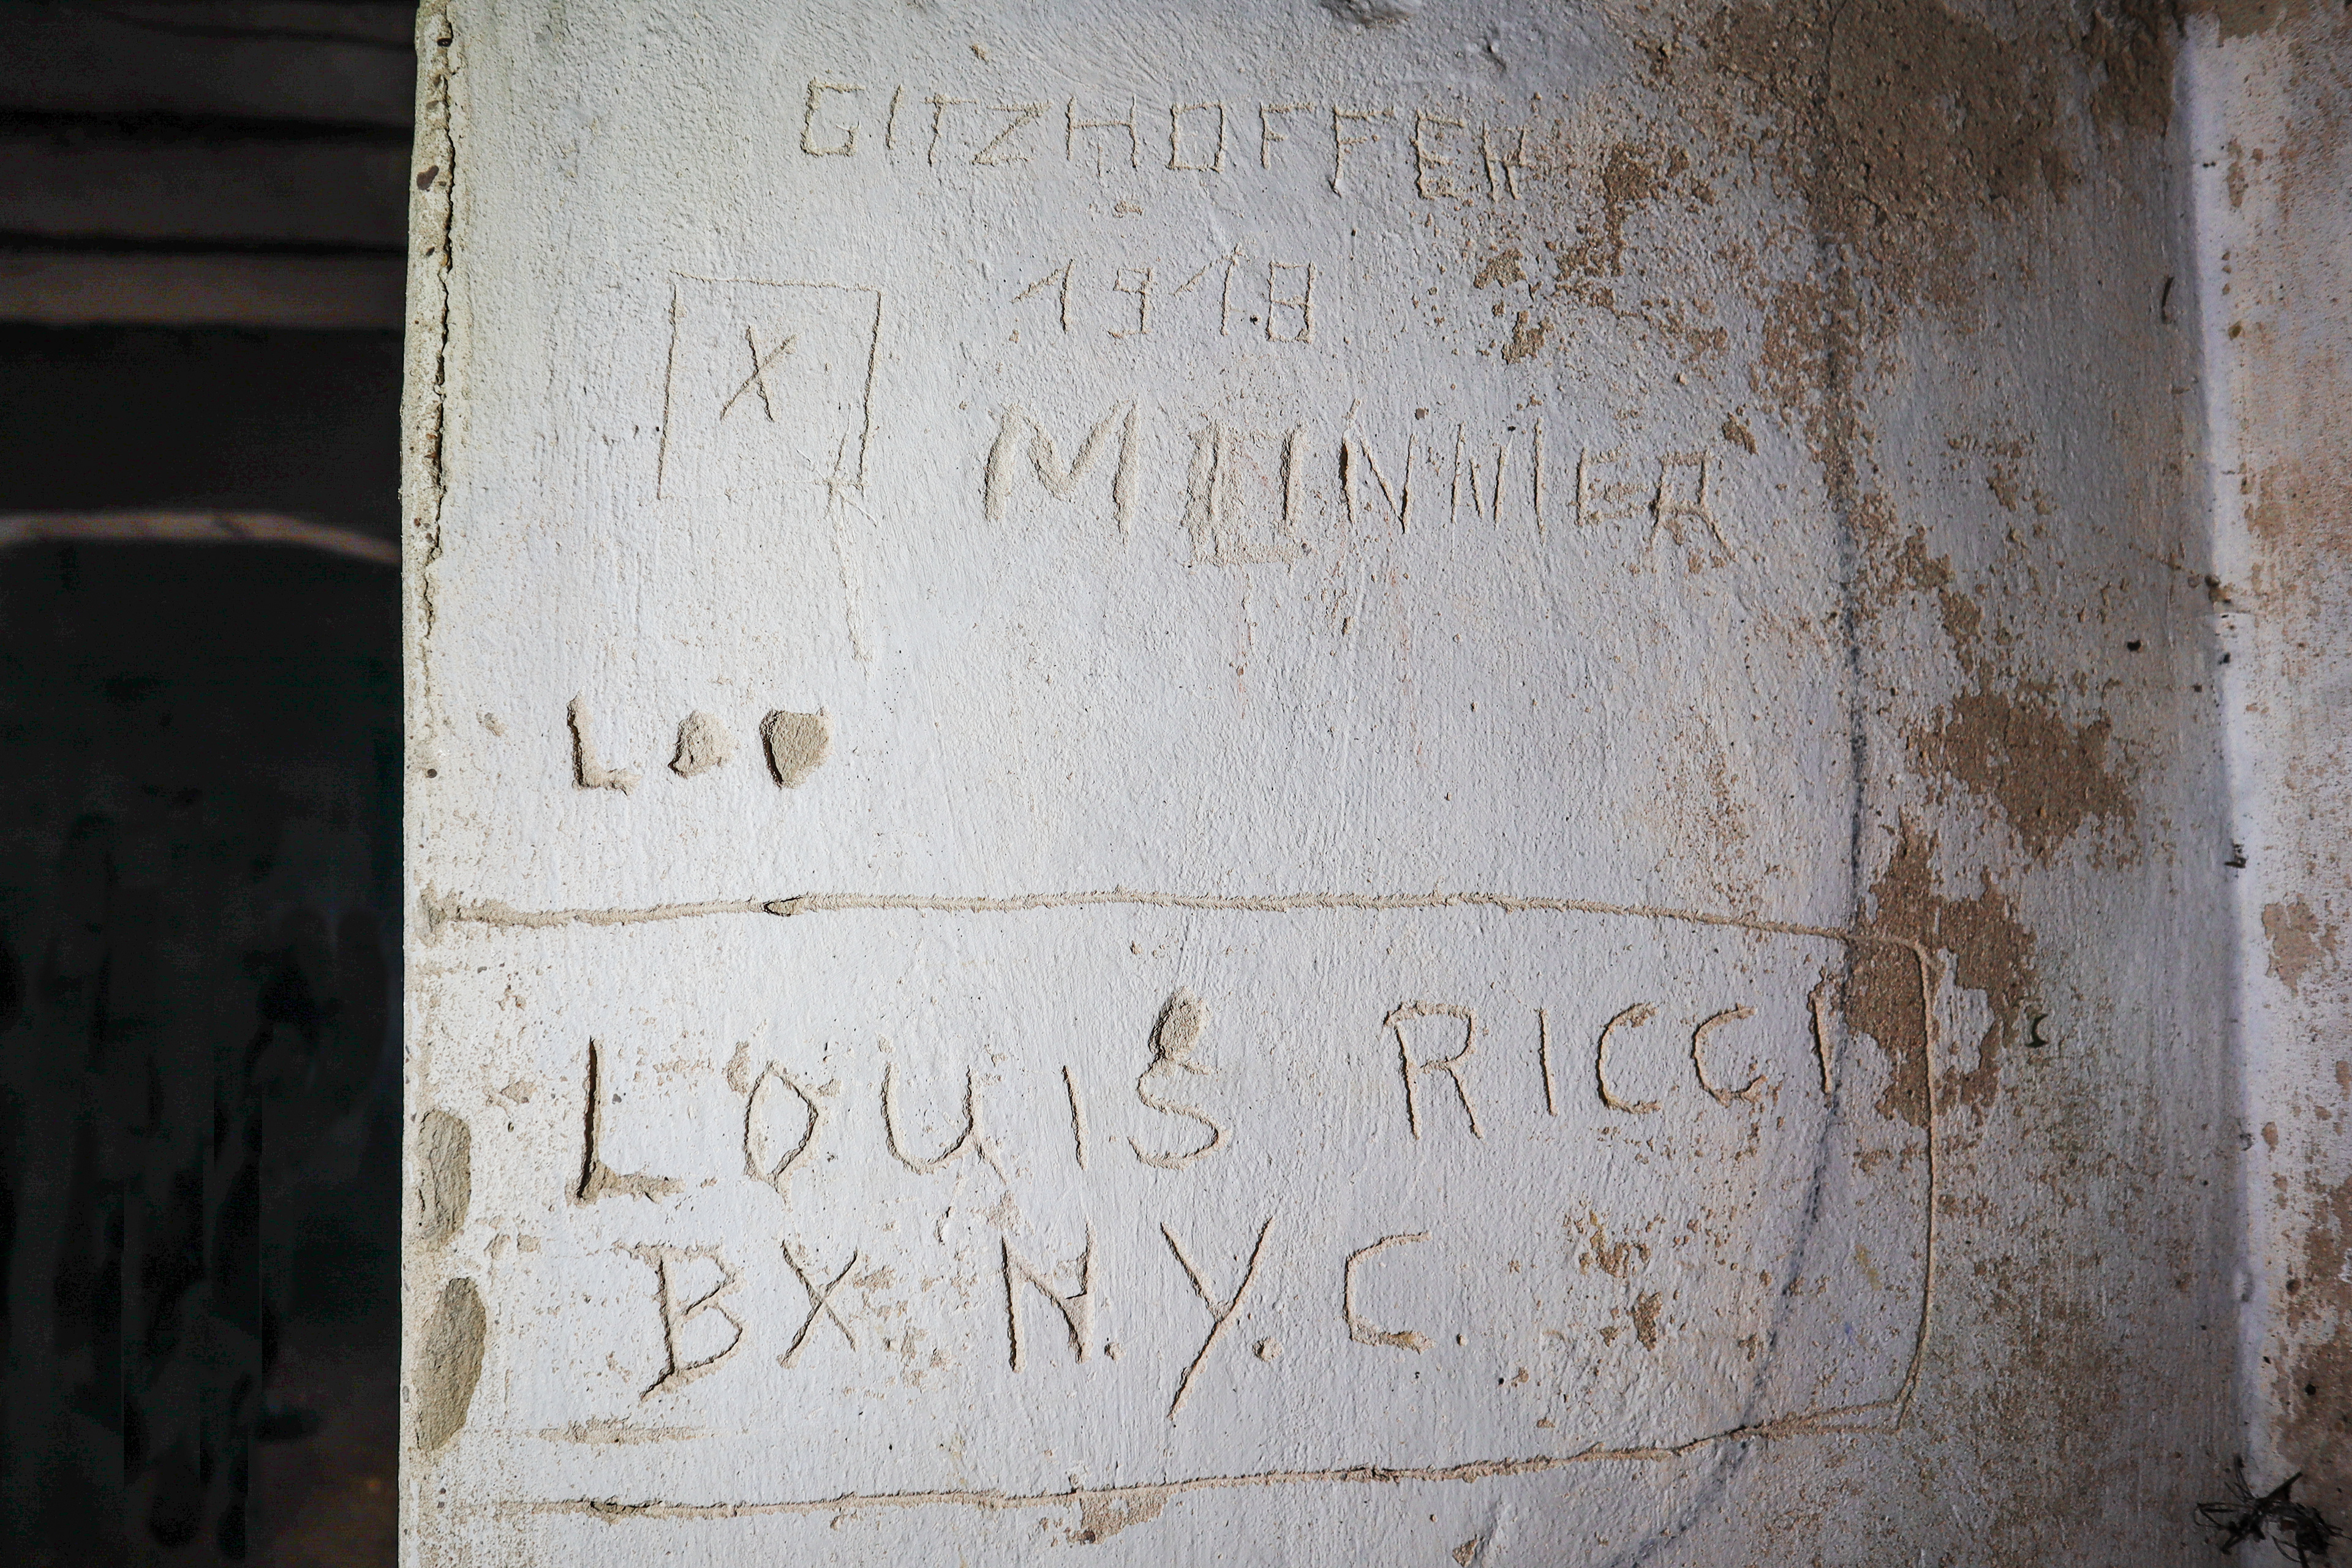 GITZHOFFEN
1918
X
MUNNIER
LOUIS RICCI
BX. N.Y.C.